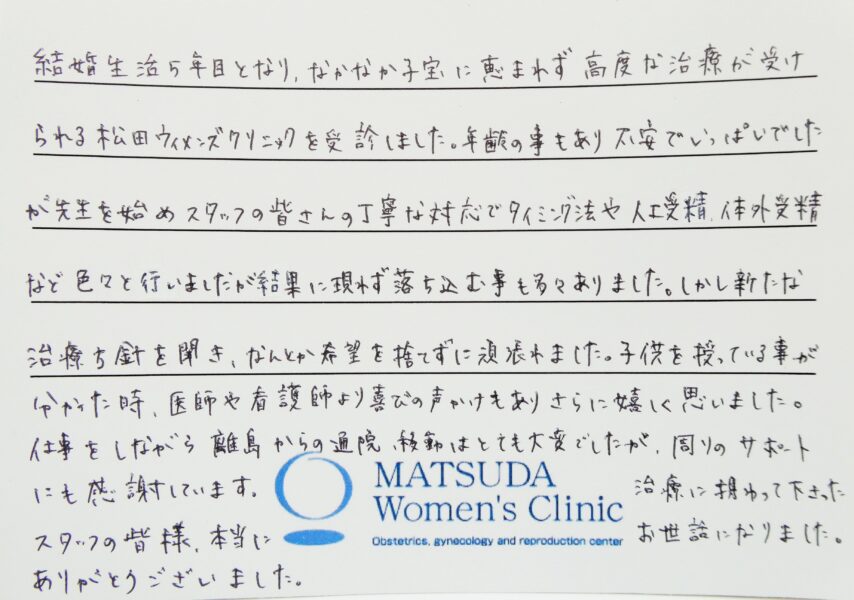 結婚生活5年目となり、なかなか子宝に恵まれず高度な治療が受け
られる松田ウィメンズクリニックを受診しました。年齢の事もあり不安でいっぱいでした
が先生を始めスタッフの皆さんの丁寧な対応でタイミング法や人工受精、体外受精
など色々と行いましたが結果に現れず落ち込む事も多々ありました。しかし新たな
治療方針を聞き、なんとか希望を捨てずに頑張れました。子供を授っている事が
分かった時、医師や看護師より喜びの声かけもありさらに嬉しく思いました。
仕事をしながら離島からの通院、移動はとても大変でしたが、周りのサポート
にも感謝しています。 治療に携わって下さった
スタッフの皆様、本当に お世話になりました。
ありがとうございました。
MATSUDA
Women's Clinic
Obstetrics, gynecology and reproduction center